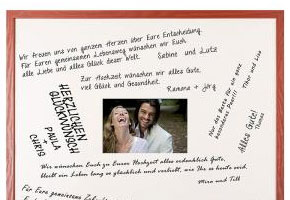 Wir freuen uns von ganzem Herzen über Eure Entscheidung.
Für Euren gemeinsamen Lebensweg wünschen wir Euch
alle Liebe und alles Glück dieser Welt. Sabine und Lutz
Zur Hochzeit wünschen wir alles Gute,
viel Glück und Gesundheit.
Ramona + Jörg
HERZLICHEN
GLÜCKWUNSCH
PAULA
CHRIS
Nur das Beste für ein ganz
besonderes Paar!!! Thor und Lisa
Alles Gute!
Thomas
Wir wünschen Euch zu Eurer Hochzeit alles erdenklich Gute,
bleibt ein Leben lang so glücklich und verliebt, wie Ihr es heute seid.
Mira und Till
Für Eure gemeinsame